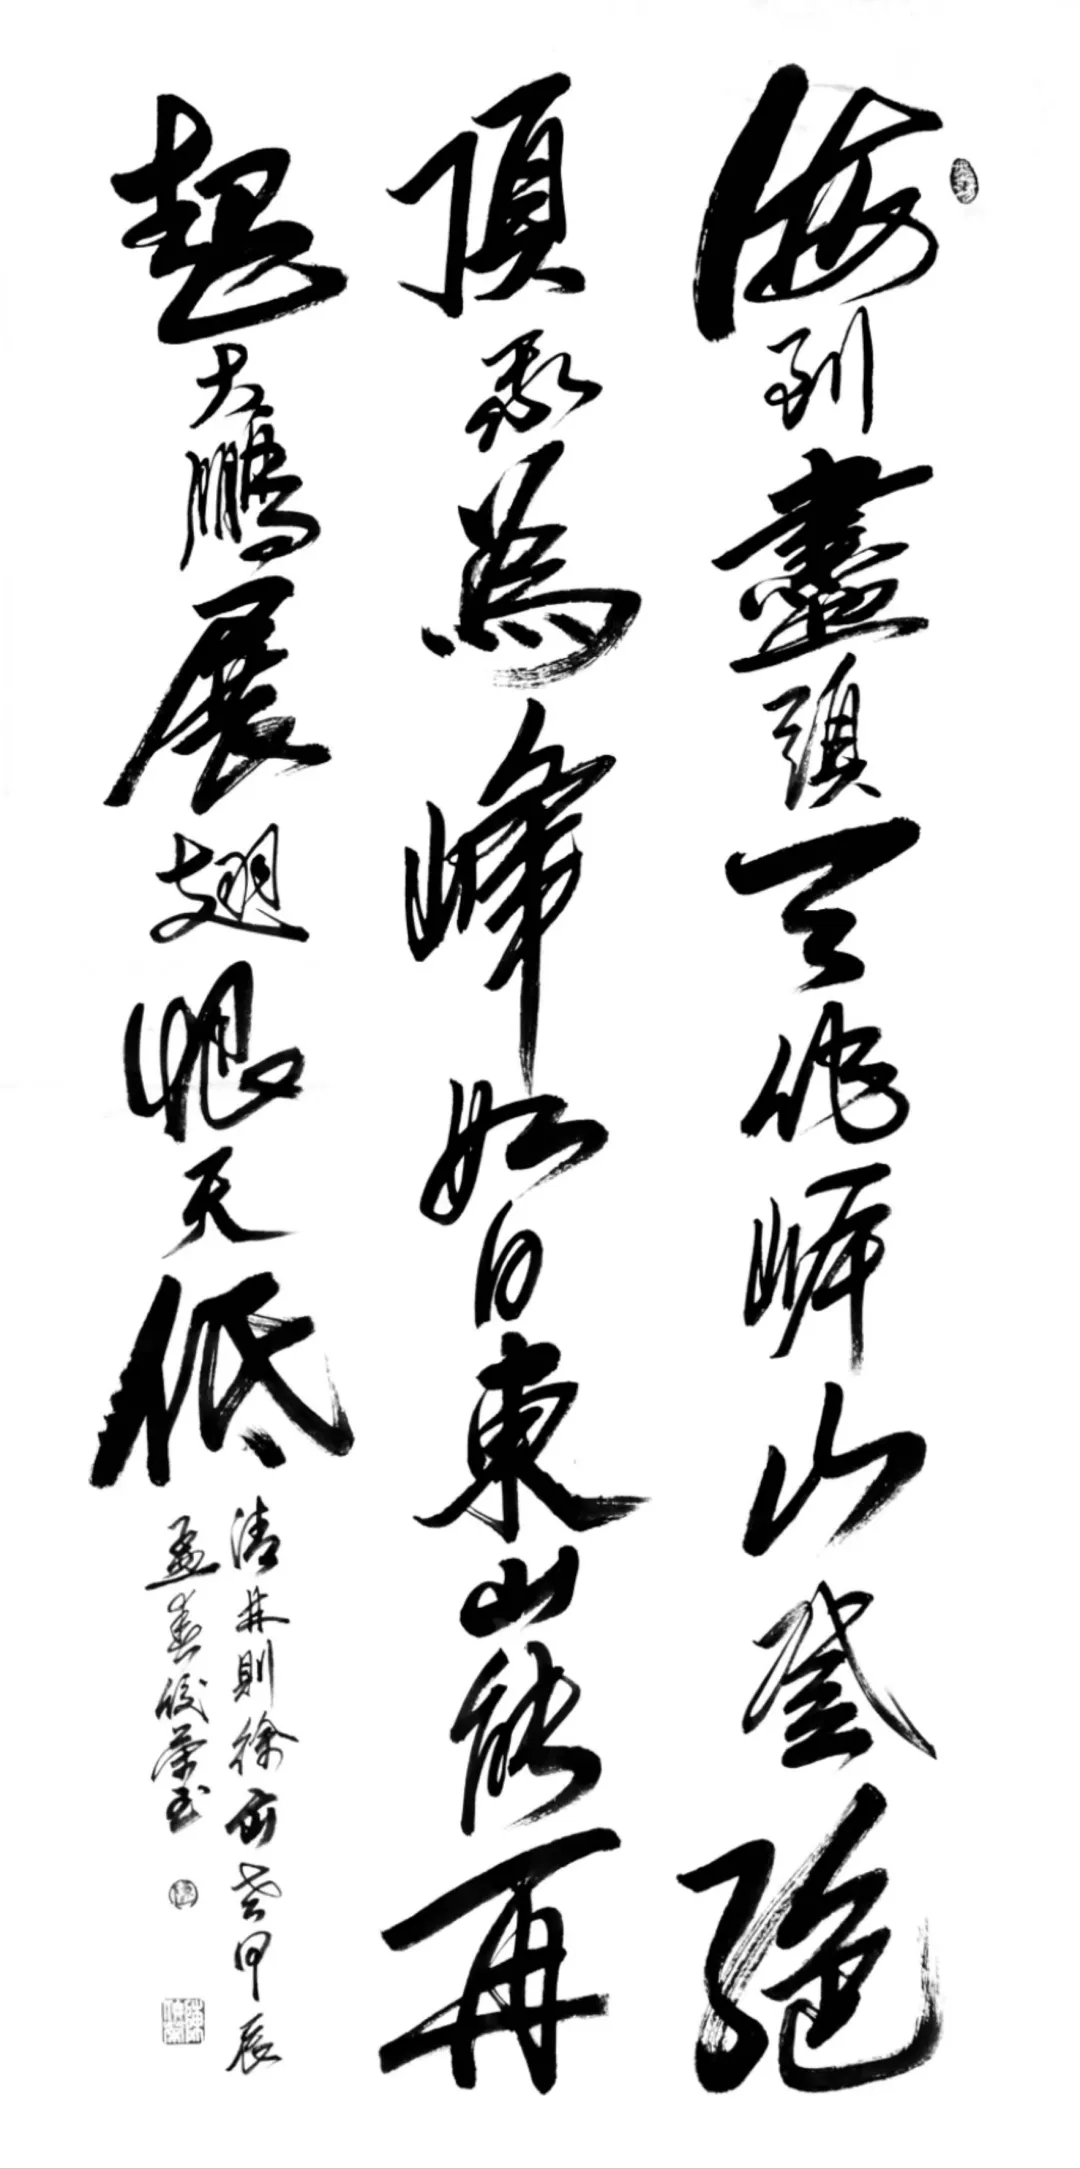 海到盡頭天作岸山登絕
頂我為峰如日東山能再
起大鵬展翅恨天低
清林則徐句歲甲辰
孟春俊榮书